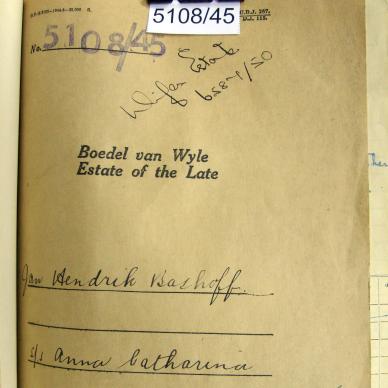 5108/45
J. 115.
No. 5108/45
Estate
6587/50
Boedel van Wyle
Estate of the Late
Jan Hendrik Bashoff.
s/s Anna Catharina